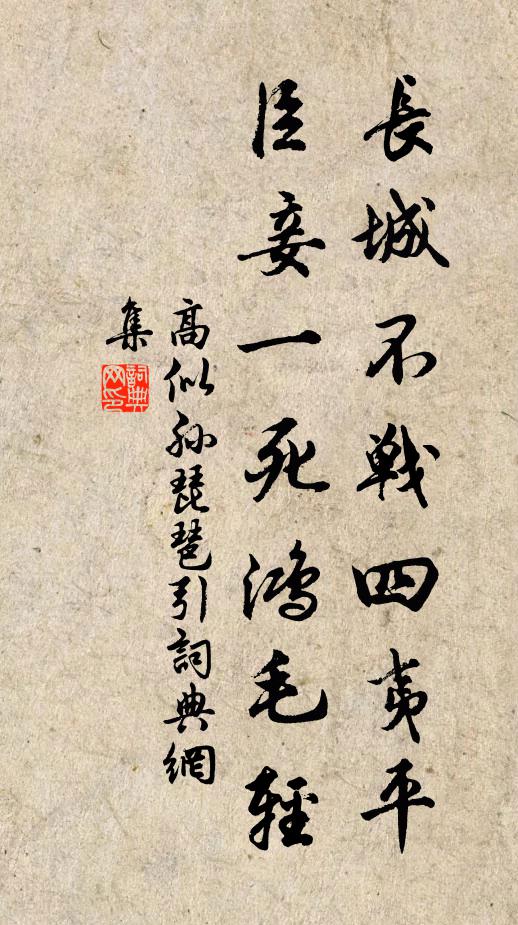 長城不戰四夷平
臣妾一死鴻毛輕
高似孫琵琶引詞典網
集
詞典
网印